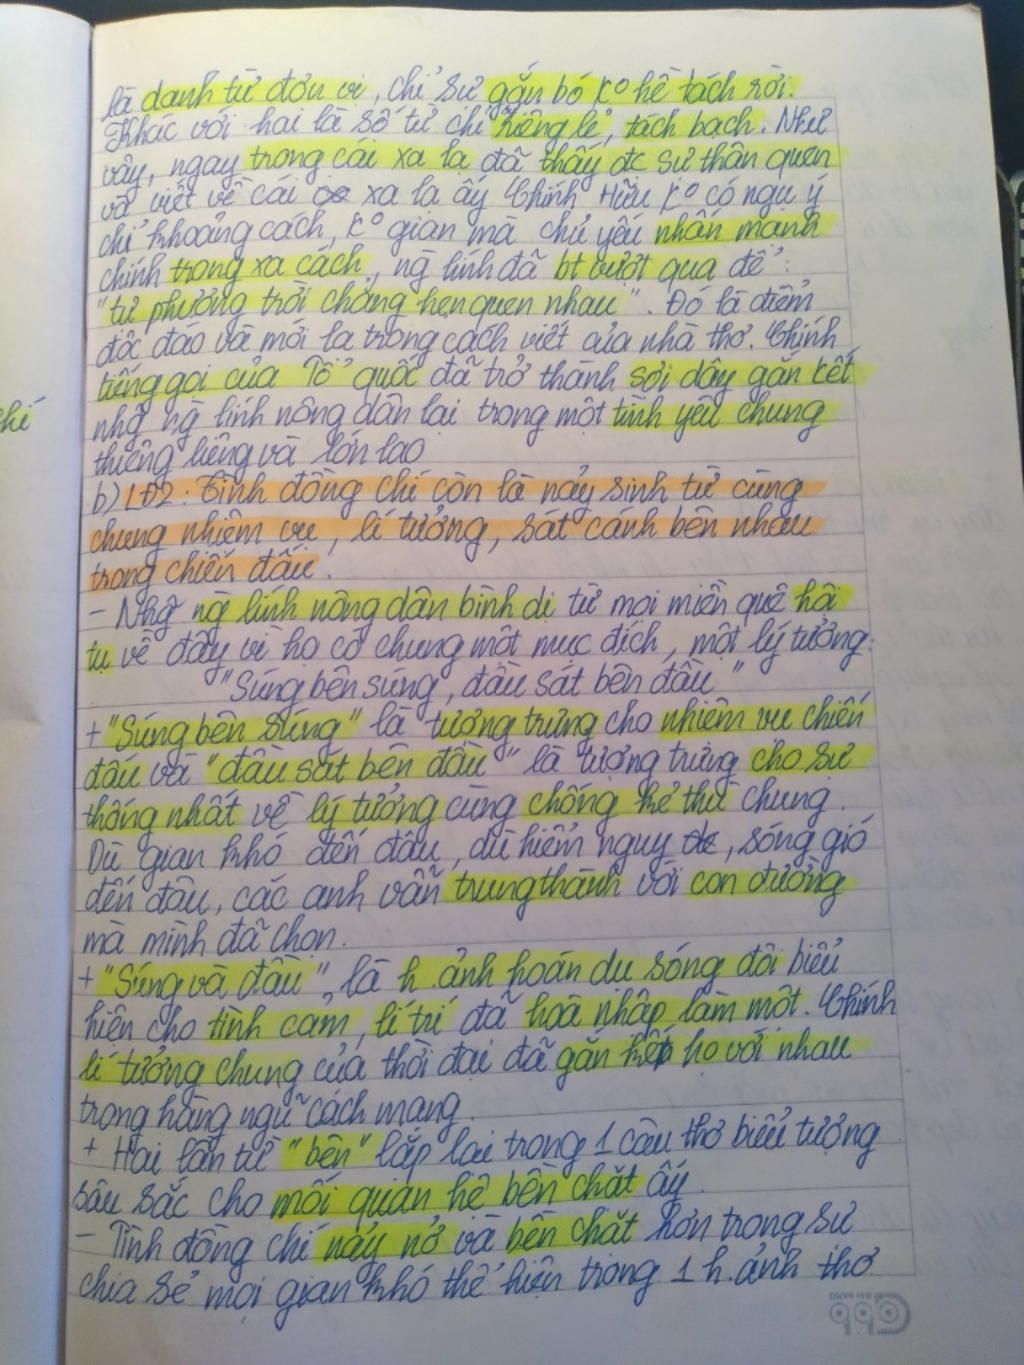 là danh từ đơn vị, chỉ sự gắn bó k° hề tách rời.
Khác với hai là số từ chỉ riêng lẻ, tách bạch. Như
vậy, ngay trong cái xa lạ đã thấy đc sự thân quen
và viết về cái xa lạ ấy Chính Hữu k° có ngụ ý
chỉ khoảng cách, k° gian mà chủ yếu nhấn mạnh
chính trong xa cách, ng lính đã bt vượt qua để:
"tự phương trời chẳng hẹn quen nhau". Đó là điểm
độc đáo và mới lạ trong cách viết của nhà thơ. Chính
tiếng gọi của Tổ quốc đã trở thành sợi dây gắn kết
nhg ng lính nông dân lại trong một tình yêu chung
thiêng liêng và lớn lao
chí
b) LĐ2: Tình đồng chí còn là nảy sinh từ cùng
chung nhiệm vụ, lí tưởng, sát cánh bên nhau
trong chiến đấu.
- Nhg ng lính nông dân bình dị từ mọi miền quê hội
tụ về đây vì họ có chung một mục đích, một lý tưởng:
"Súng bên súng, đầu sát bên đầu"
+ "Súng bên súng" là tượng trưng cho nhiệm vụ chiến
đấu và "đầu sát bên đầu" là tượng trưng cho sự
thống nhất về lý tưởng cùng chống kẻ thù chung.
Dù gian khó đến đâu, dù hiểm nguy, sóng gió
đến đâu, các anh vẫn trung thành với con đường
mà mình đã chọn.
+ "Súng và đầu", là h.ảnh hoán dụ sóng đôi biểu
hiện cho tình cảm, lí trí đã hoà nhập làm một. Chính
lí tưởng chung của thời đại đã gắn kết họ với nhau
trong hàng ngũ cách mạng.
+ Hai lần từ "bên" lặp lại trong 1 câu thơ biểu tượng
sâu sắc cho mối quan hệ bền chặt ấy.
- Tình đồng chí nảy nở và bền chặt hơn trong sự
chia sẻ mọi gian khó thể hiện trong 1 h.ảnh thơ